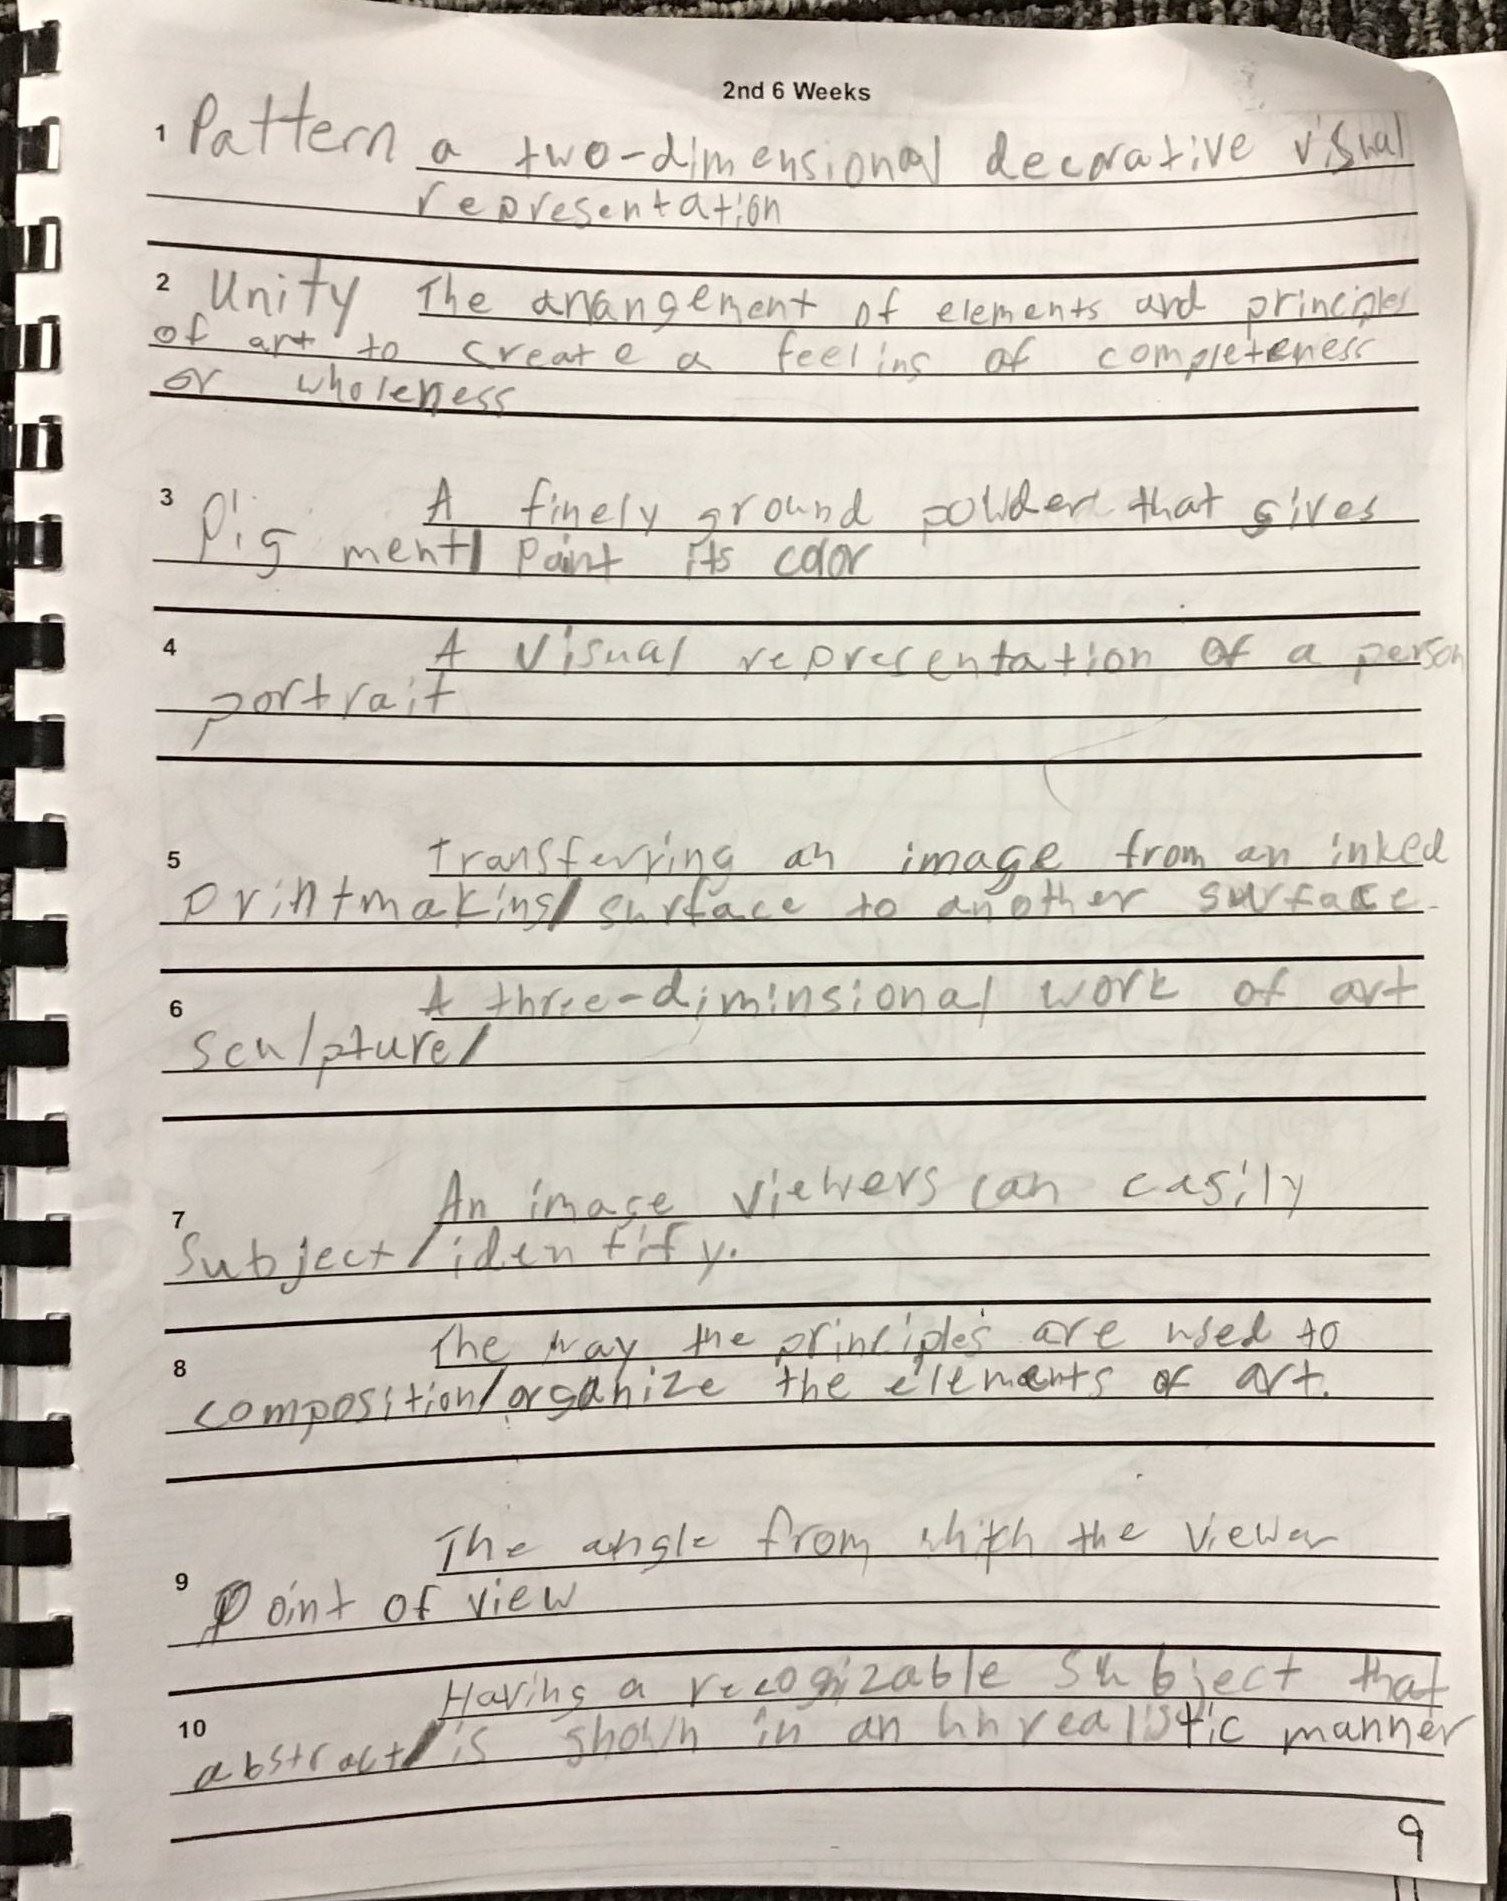 2nd 6 Weeks
1 Pattern a two-dimensional decorative visual
representation
2 Unity The arrangement of elements and principles
of art to create a feeling of completeness
or wholeness
3 A finely ground powder that gives
Pig ment/ paint its color
4 A visual representation of a person
portrait
5 Transferring an image from an inked
printmaking/ surface to another surface.
6 A three-diminsional work of art
sculpture/
7 An image viewers can easily
Subject/ identify.
8 The way the principles are used to
composition/organize the elements of art.
9 The angle from which the viewer
Point of view
10 Having a recognizable subject that
abstract/ is shown in an unrealistic manner
9